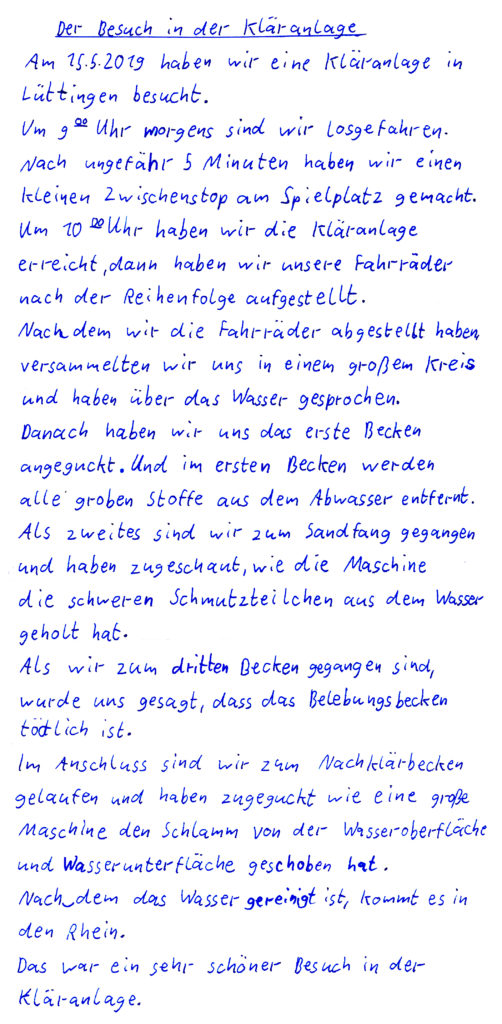 Der Besuch in der Kläranlage
Am 15.5.2019 haben wir eine Kläranlage in
Lüttingen besucht.
Um 9⁰⁰ Uhr morgens sind wir losgefahren.
Nach ungefähr 5 Minuten haben wir einen
kleinen Zwischenstop am Spielplatz gemacht.
Um 10⁰⁰ Uhr haben wir die Kläranlage
erreicht, dann haben wir unsere Fahrräder
nach der Reihenfolge aufgestellt.
Nachdem wir die Fahrräder abgestellt haben,
versammelten wir uns in einem großem Kreis
und haben über das Wasser gesprochen.
Danach haben wir uns das erste Becken
angeguckt. Und im ersten Becken werden
alle groben Stoffe aus dem Abwasser entfernt.
Als zweites sind wir zum Sandfang gegangen
und haben zugeschaut, wie die Maschine
die schweren Schmutzteilchen aus dem Wasser
geholt hat.
Als wir zum dritten Becken gegangen sind,
wurde uns gesagt, dass das Belebungsbecken
tödlich ist.
Im Anschluss sind wir zum Nachklärbecken
gelaufen und haben zugeguckt wie eine große
Maschine den Schlamm von der Wasseroberfläche
und Wasserunterfläche geschoben hat.
Nachdem das Wasser gereinigt ist, kommt es in
den Rhein.
Das war ein sehr schöner Besuch in der
Kläranlage.